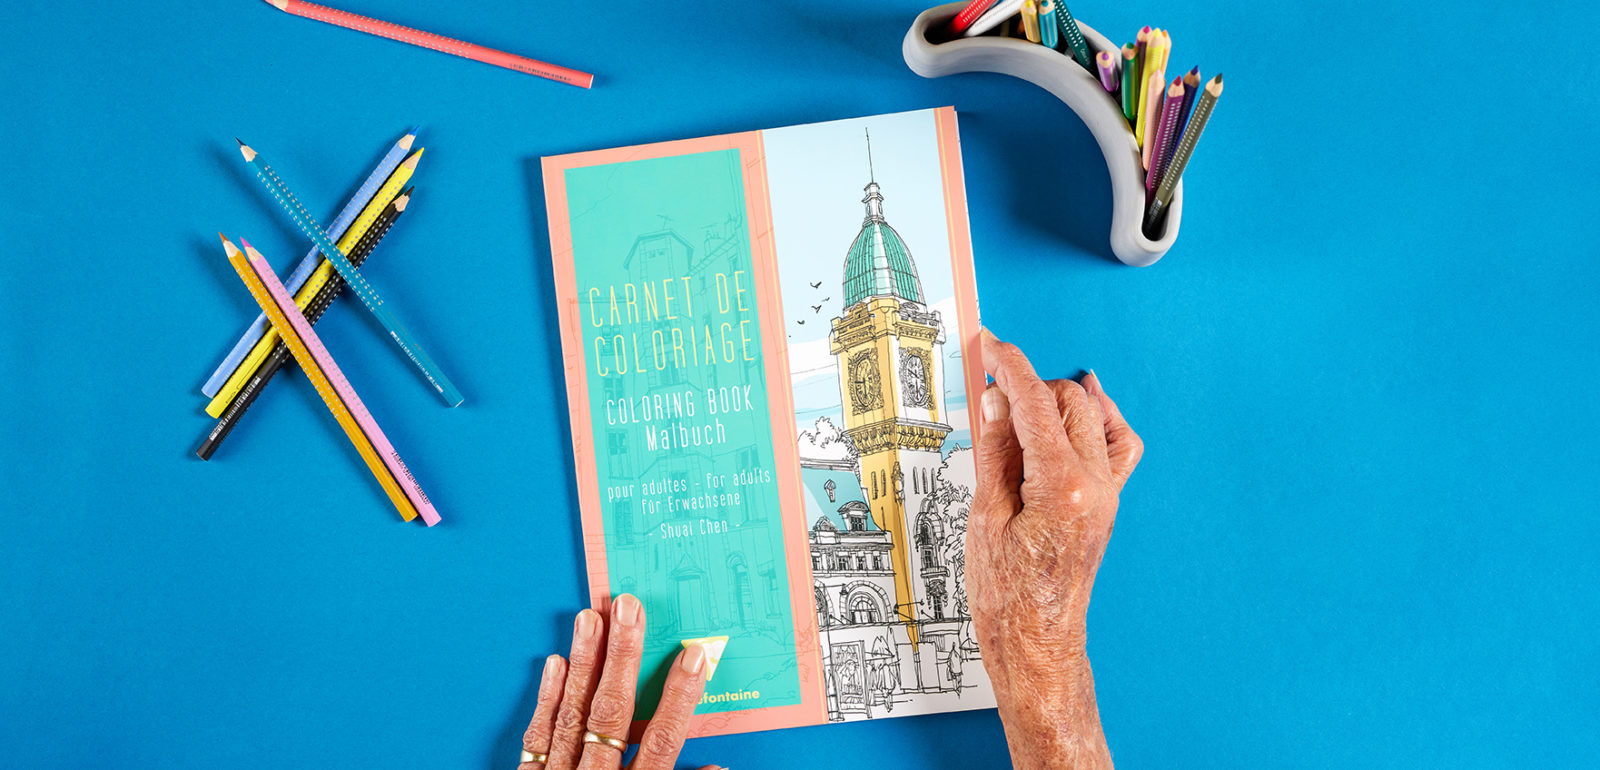 CARNET DE
COLORIAGE
COLORING BOOK
Malbuch
pour adultes - for adults
für Erwachsene
- Shuai Chen -
fontaine